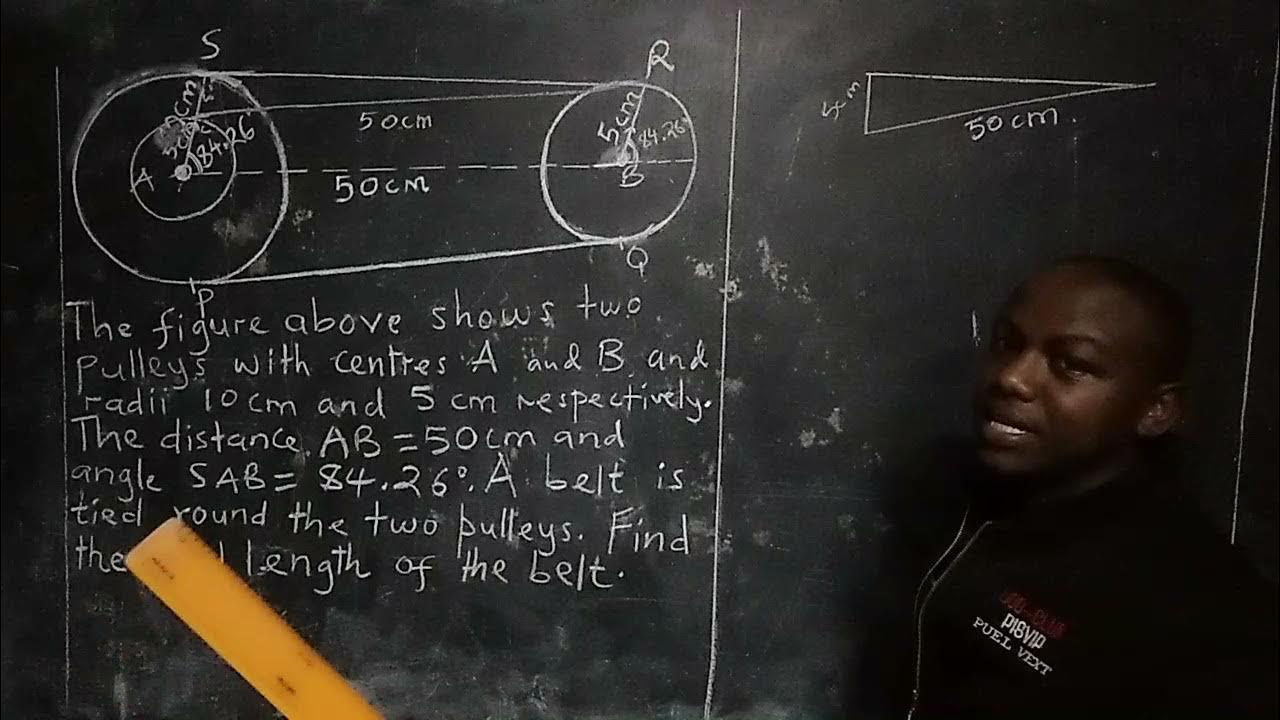 S
R
50cm
5cm
84.26°
5cm
84.26°
A
B
50cm
P
Q
5cm
50cm.
The figure above shows two
pulleys with centres A and B and
radii 10cm and 5cm respectively.
The distance AB = 50cm and
angle SAB = 84.26°. A belt is
tied round the two pulleys. Find
the length of the belt.
PIGVIP
PUEL VEXT